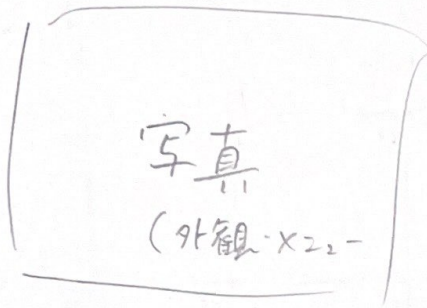 写真
(外観・メニュー